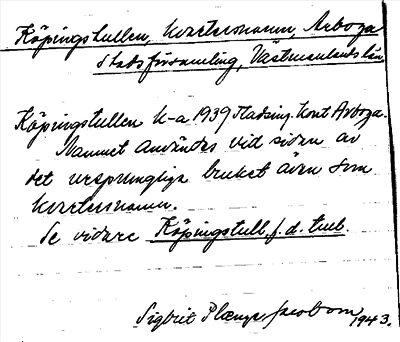 Köpingstullen, kvartersnamn, Arboga
stadsförsamling, Västmanlands län.
Köpingstullen k-a 1939 Stadsing. kont Arboga.
Namnet användes vid sidan av
det ursprungliga bruket även som
kvartersnamn.
Se vidare Köpingstull, f.d. tull.
Sigbrit Plænge Jacobson
1943.